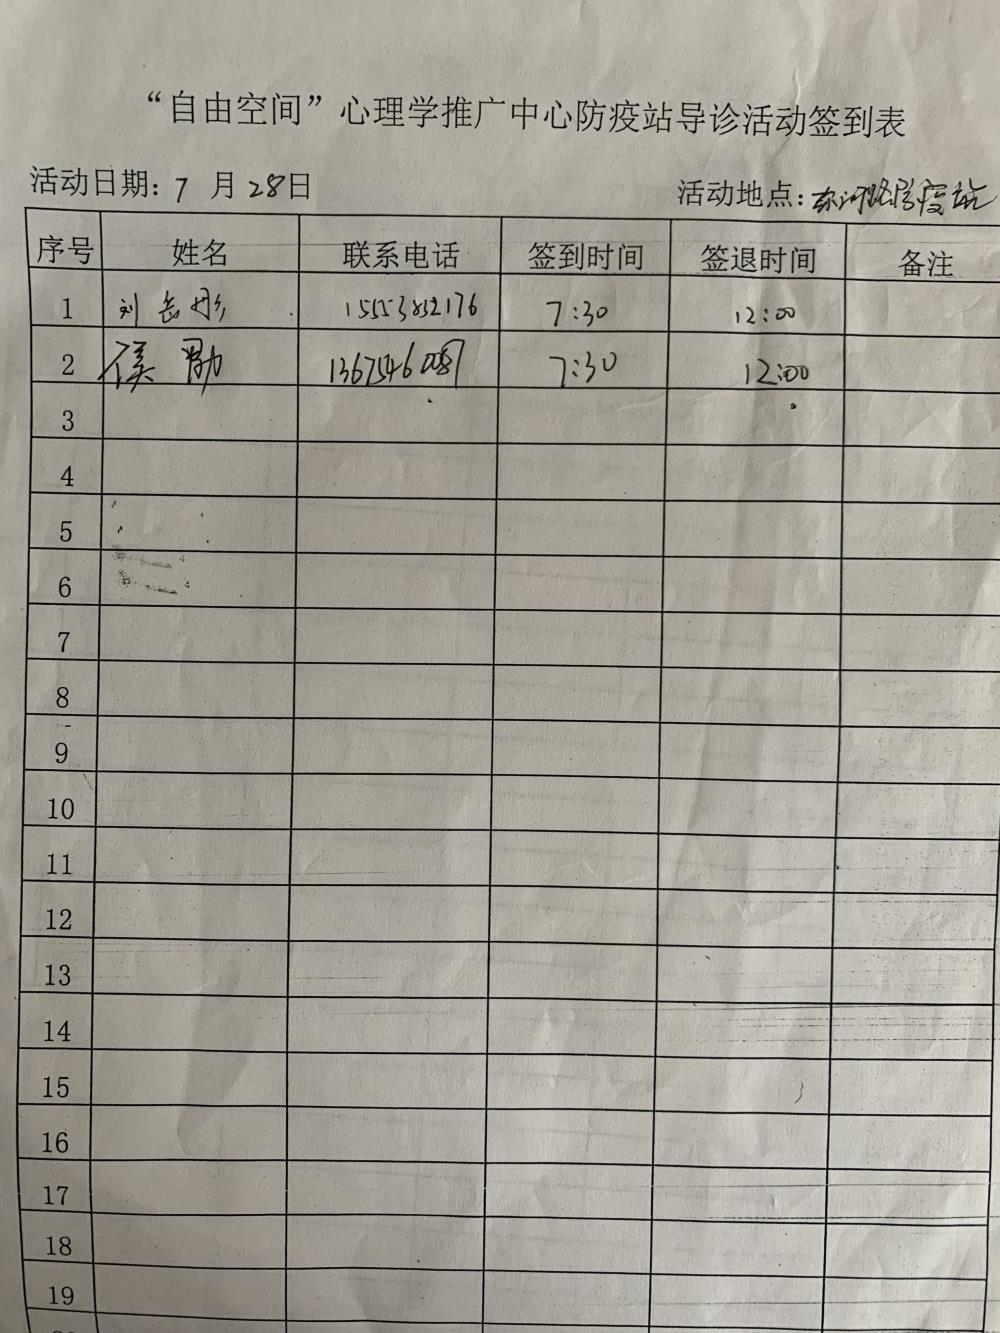 “自由空间”心理学推广中心防疫站导诊活动签到表
活动日期: 7 月 28日 活动地点:东河路防疫站
序号 姓名 联系电话 签到时间 签退时间 备注
1 刘岳彤 15553832176 7:30 12:00
2 侯勋 13675460087 7:30 12:00
3
4
5
6
7
8
9
10
11
12
13
14
15
16
17
18
19